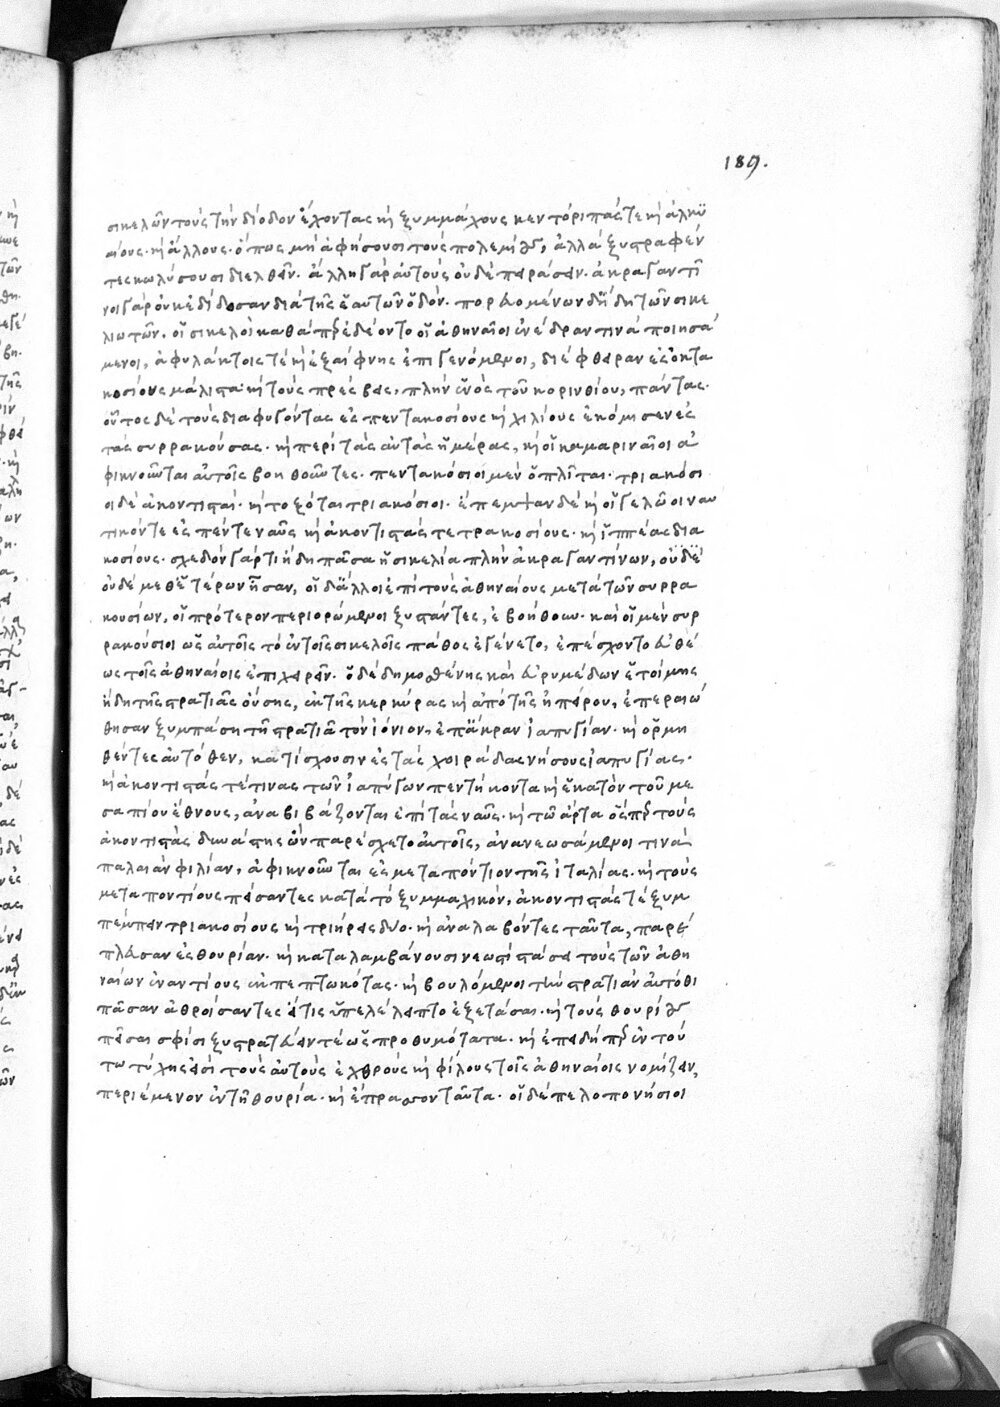 189.
σικελῶν τοὺς τὴν δίοδον ἔχοντας κὴ ξυμμάχους κεντόριπάς τε κὴ ἀλικυ
αίους· κὴ ἄλλους· ὅπως μὴ ἀφήσουσι τοὺς πολεμίους, ἀλλὰ ξυστραφέν
τες κωλύσουσι διελθεῖν. ἄλλη γὰρ αὐτοὺς οὐδὲ πειράσειν. ἀκραγαντῖ
νοι γὰρ οὐκ ἐδίδοσαν διὰ τῆς ἑαυτῶν ὁδόν. πορευομένων δ' ἤδη τῶν σικε
λιωτῶν. οἱ σικελοὶ καθάπερ ἐδέοντο οἱ ἀθηναῖοι ἐνέδραν τινὰ ποιησά
μενοι, ἀφυλάκτοις τὲ κὴ ἐξαίφνης ἐπιγενόμενοι, διέφθειραν ἐς ὀκτα
κοσίους μάλιστα· κὴ τοὺς πρέσβεις, πλὴν ἑνὸς τοῦ κορινθίου, πάντας·
οὗτος δὲ τοὺς διαφυγόντας ἐς πεντακοσίους κὴ χιλίους ἐκόμισεν ἐς
τὰς συρρακούσας. κὴ περὶ τὰς αὐτὰς ἡμέρας, κὴ οἱ καμαριναῖοι ἀ
φικνοῦνται αὐτοῖς βοηθοῦντες. πεντακόσιοι μὲν ὁπλῖται. τριακόσι
οι δὲ ἀκοντισταί. κὴ τοξόται τριακόσιοι. ἔπεμψαν δὲ κὴ οἱ γελῶοι ναυ
τικόν τε ἐς πέντε ναῦς κὴ ἀκοντιστὰς τετρακοσίους. κὴ ἱππέας δια
κοσίους. σχεδὸν γάρ τι ἤδη πᾶσα ἡ σικελία πλὴν ἀκραγαντίνων, οὗ δὲ
οὐδὲ μεθ' ἑτέρων ἦσαν, οἱ δ' ἄλλοι ἐπὶ τοὺς ἀθηναίους μετὰ τῶν συρρα
κουσίων, οἱ πρότερον περιορώμενοι ξυστάντες, ἐβοήθουν. καὶ οἱ μὲν συρ
ρακούσιοι ὡς αὐτοῖς τὸ ἐν τοῖς σικελοῖς πάθος ἐγένετο, ἐπέσχοντο εὐθέ
ως τοῖς ἀθηναίοις ἐπιχειρεῖν. ὁ δὲ δημοσθένης καὶ εὐρυμέδων ἑτοίμης
ἤδη τῆς στρατιᾶς οὔσης, ἐκ τῆς κερκύρας κὴ ἀπὸ τῆς ἠπείρου, ἐπεραιώ
θησαν ξυμπάσῃ τῆ στρατιᾶ τὸν ἰόνιον, ἐπ' ἄκραν ἰαπυγίαν. κὴ ὁρμη
θέντες αὐτόθεν, κατίσχουσιν ἐς τὰς χοιράδας νήσους ἰαπυγίας.
κὴ ἀκοντιστάς τέ τινας τῶν ἰαπύγων πεντήκοντα κὴ ἑκατὸν τοῦ με
σαπίου ἔθνους, ἀναβιβάζονται ἐπὶ τὰς ναῦς. κὴ τῶ ἄρτα ὅσπερ τοὺς
ἀκοντιστὰς δυνάστης ὢν παρέσχετο αὐτοῖς, ἀνανεωσάμενοι τινὰ
παλαιὰν φιλίαν, ἀφικνοῦνται ἐς μεταπόντιον τῆς ἰταλίας. κὴ τοὺς
μεταποντίους πείσαντες κατὰ τὸ ξυμμαχικόν, ἀκοντιστάς τὲ ξυμ
πέμπειν τριακοσίους κὴ τριήρεις δύο. κὴ ἀναλαβόντες ταῦτα, παρέ
πλευσαν ἐς θουρίαν. κὴ καταλαμβάνουσι νεωστὶ στάσει τοὺς τῶν ἀθη
ναίων ἐναντίους ἐκπεπτωκότας. κὴ βουλόμενοι τὴν στρατιὰν αὐτόθι
πᾶσαν ἀθροίσαντες εἴ τις ὑπελέλειπτο ἐξετάσαι. κὴ τοὺς θουρίους
πεῖσαι σφίσι ξυστρατεύειν τὲ ὡς προθυμότατα. κὴ ἐπειδήπερ ἐν τού
τω τύχης εἰσὶ τοὺς αὐτοὺς ἐχθροὺς κὴ φίλους τοῖς ἀθηναίοις νομίζειν,
περιέμενον ἐν τῆ θουρία. κὴ ἔπρασσον ταῦτα. οἱ δὲ πελοπονήσιοι